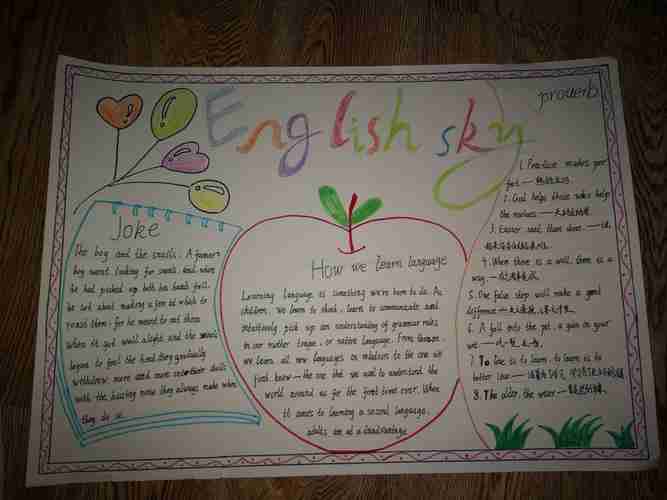 English sky
proverb
Joke
The boy and the snails. A farmer's
boy went looking for snails and when
he had picked up both his hands full.
he set about making a fire at which to
roast them; for he meant to eat them
When it got well alight and the snails
began to feel the heat, they gradually
withdrew more and more into their shells
with the hissing noise they always make when
they do so
How we learn language
Learning language is something we're born to do. As
children, we learn to think, learn to communicate and
intuitively pick up an understanding of grammar rules
in our mother tongue, or native language. From then on,
we learn all new languages in relation to the one we
first know — the one that we used to understand the
world around us for the first time ever. When
it comes to learning a second language,
adults are at a disadvantage
1. Practice makes per
fect —
2. God helps those who help
themselves —
3. Easier said than done. —
4. When there is a will, there is a
way. —
5. One false step will make a great
difference —
6. A fall into the pit, a gain in your
wit —
7. To live is to learn, to learn is to
better live —
8. The older, the wiser —